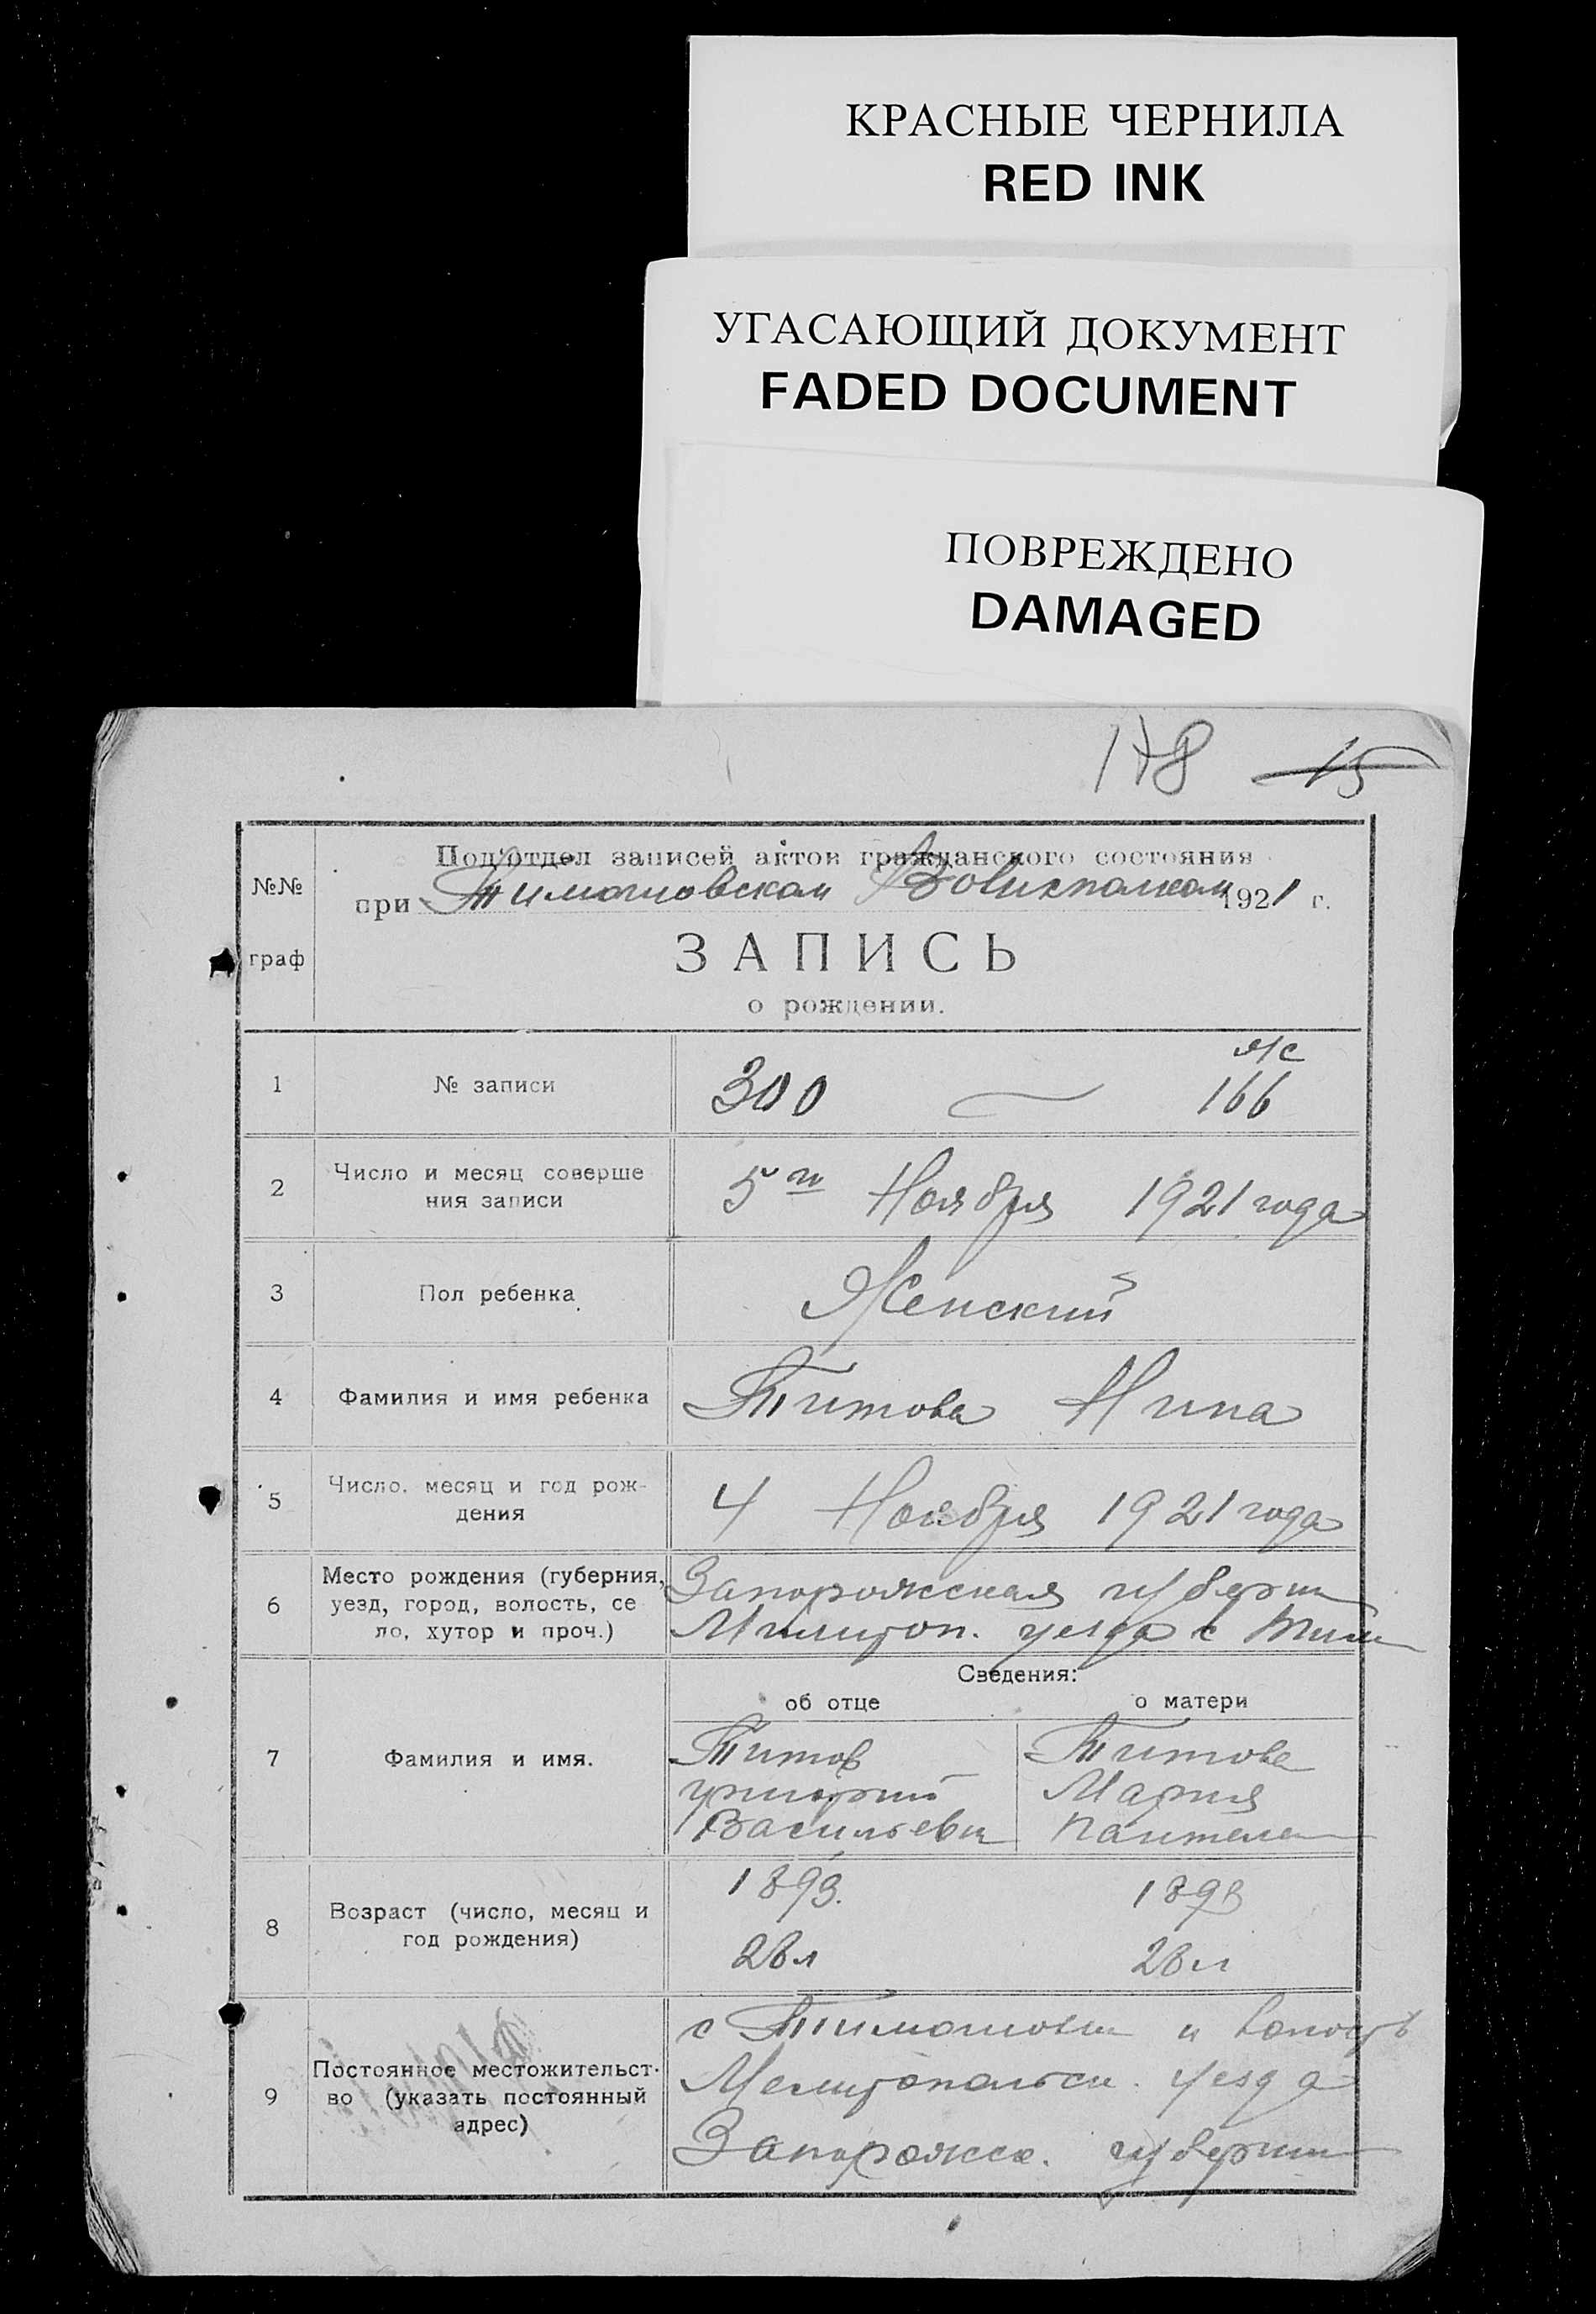 КРАСНЫЕ ЧЕРНИЛА
RED INK
УГАСАЮЩИЙ ДОКУМЕНТ
FADED DOCUMENT
ПОВРЕЖДЕНО
DAMAGED
178 15
№№ граф
Под'отдел записей актов гражданского состояния
при Тимошовском Волисполком 1921 г.
ЗАПИСЬ
о рождении.
ж/с
1 № записи 300 166
2 Число и месяц соверше
ния записи 5го Ноября 1921 года
3 Пол ребенка Женский
4 Фамилия и имя ребенка Титова Нина
5 Число, месяц и год рож-
дения 4 Ноября 1921 года
6 Место рождения (губерния,
уезд, город, волость, се
ло, хутор и проч.)
Запорожская губерн
Мелитоп. уезда с Тим
Сведения:
об отце о матери
7 Фамилия и имя.
Титов
Григорий
Васильеви
Титова
Мария
Пантеле
8 Возраст (число, месяц и
год рождения)
1893. 1893
28 л 28 л
9 Постоянное местожительст-
во (указать постоянный
адрес)
с Тимошовки и волость
Мелитопольск. уезда
Запорожск. губернии